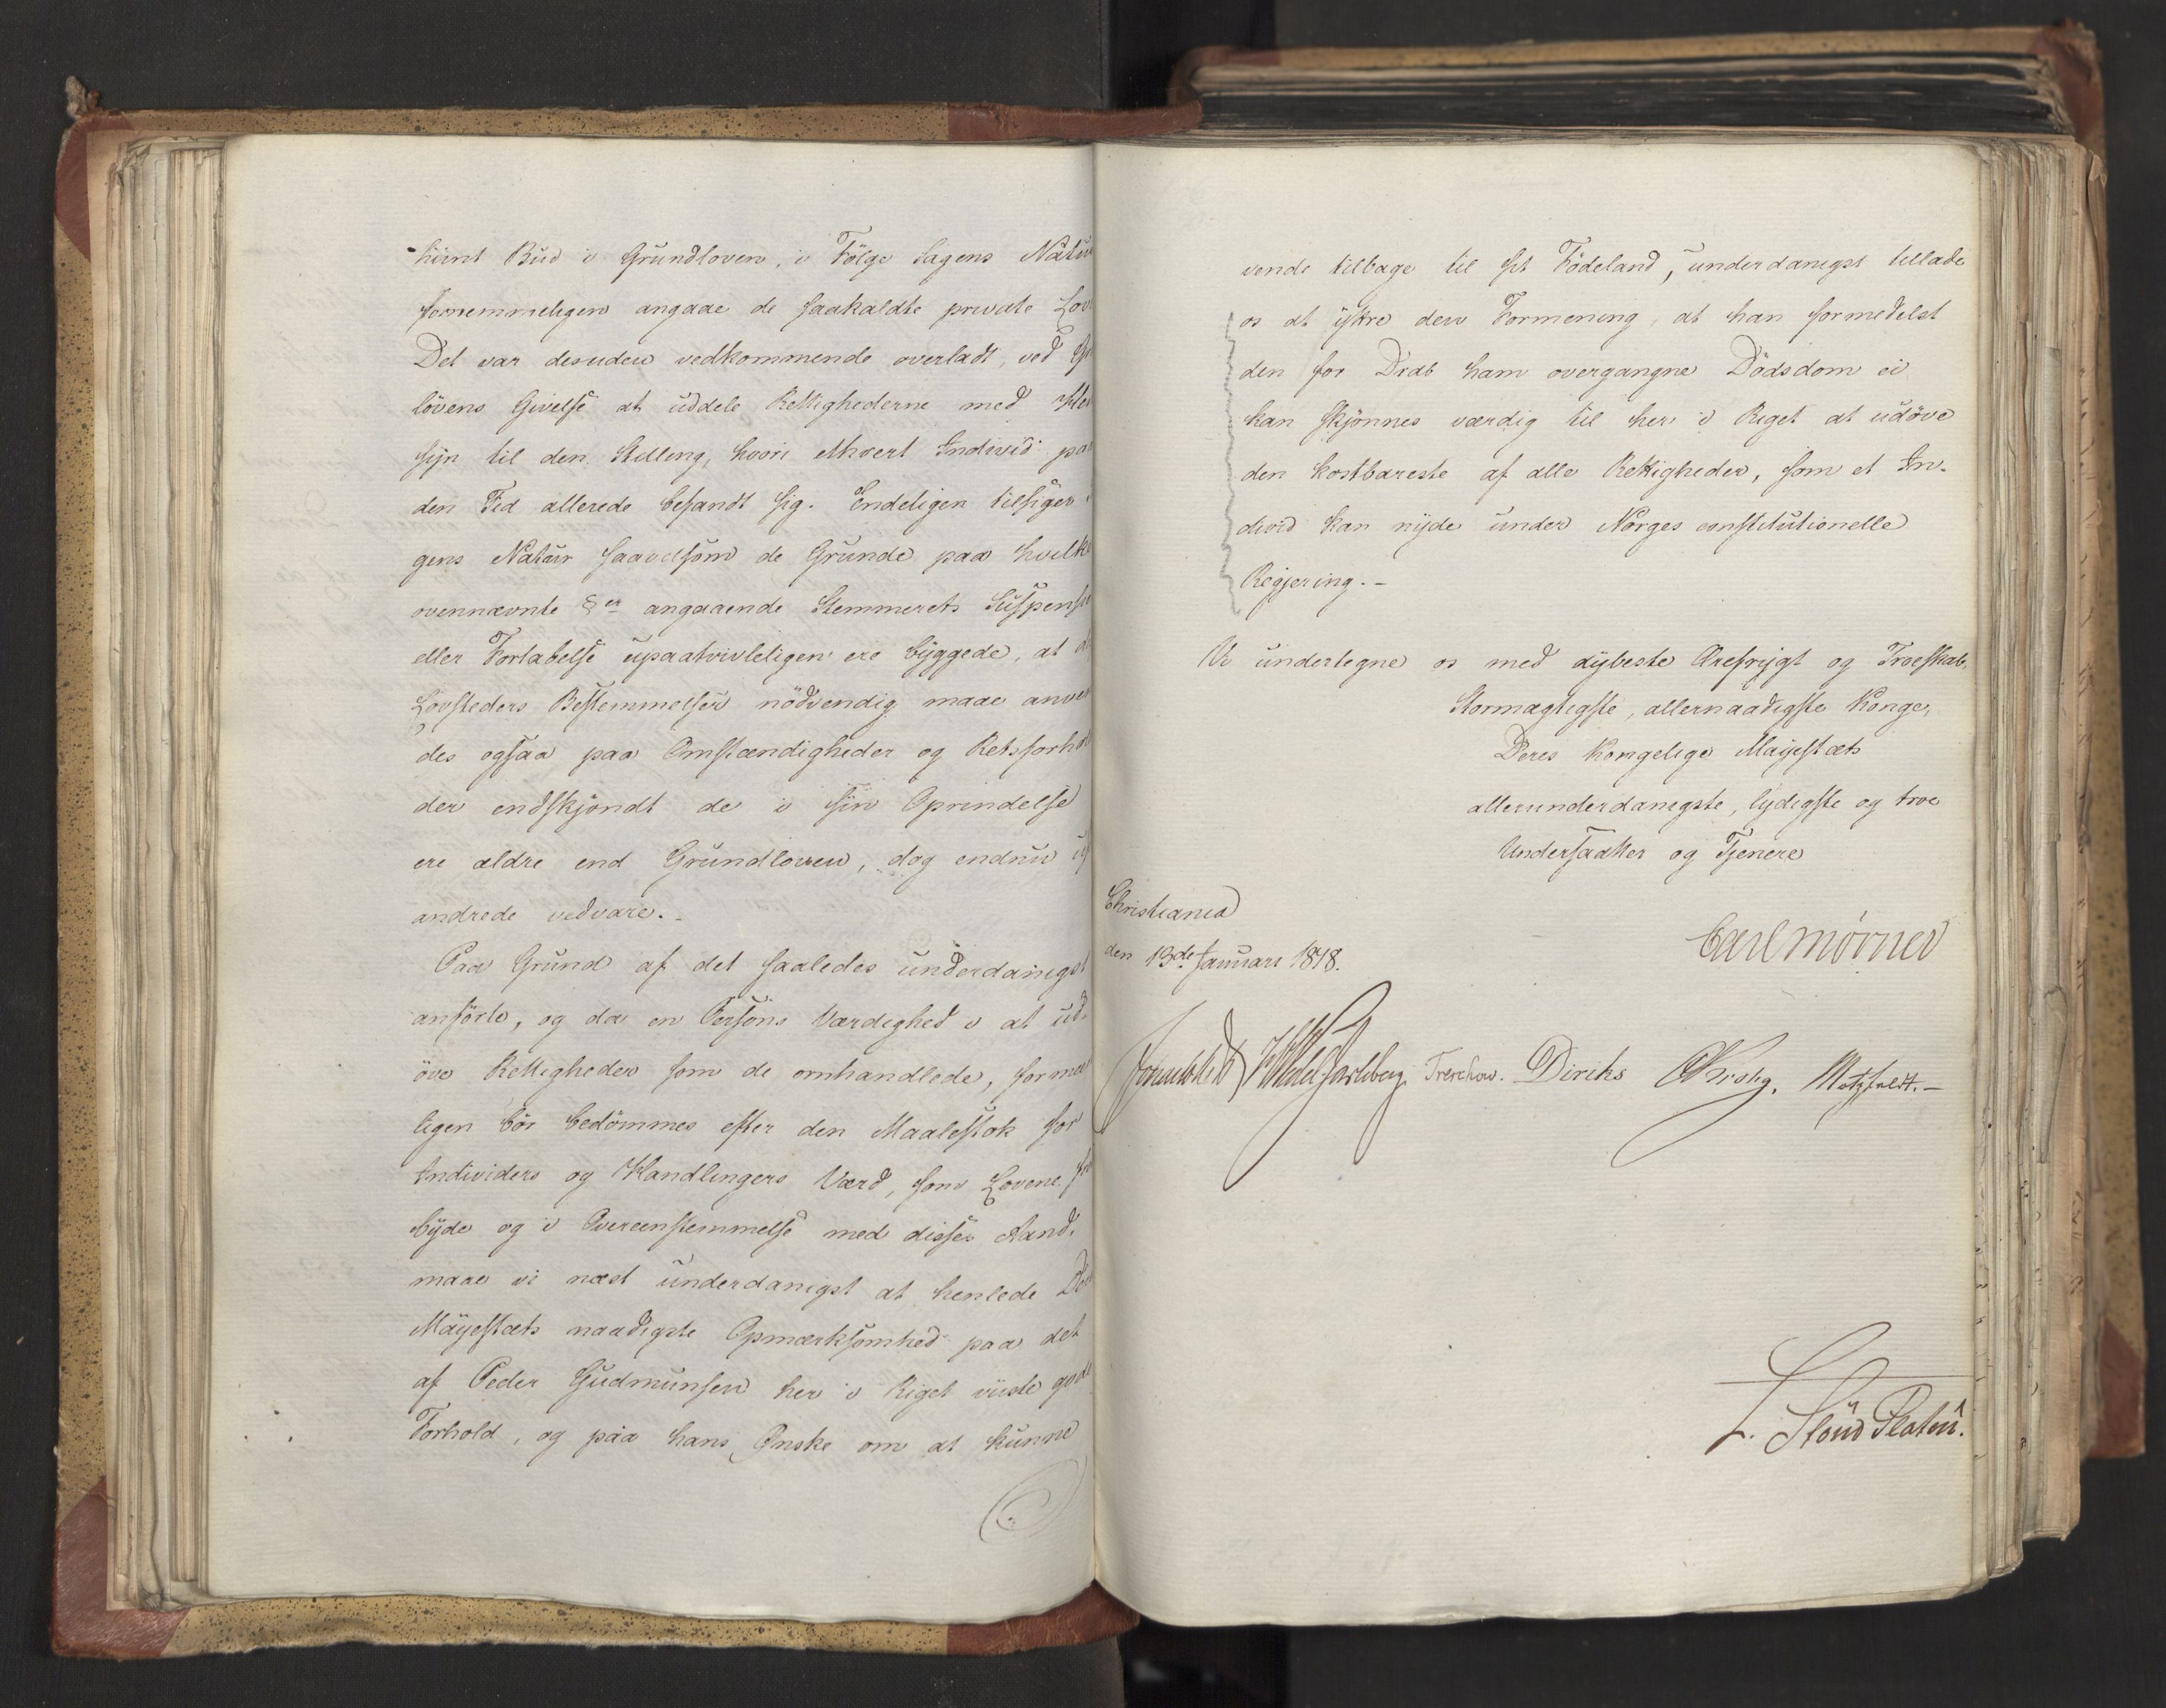 hiint Bud i Grundloven, i Følge Sagens Natur
fornemmeligen angaae de saakaldte private Lov
Det var desuden vedkommende overladt, ved
lövens Givelse at uddele Rettighederne med
syn til den Stilling, hvori ethvert Individ paa
den Tid allerede befandt sig. Endeligen tilsiger
gens Natur saavelsom de Grunde paa hvilke
ovennævnte §er angaaende Stemmerets Suspension
eller Fortabelse upaatvivleligen ere byggede, at
Lovsteders Bestemmelser nödvendig maae anven
des ogsaa paa Omstændigheder og Retsforhol
der endskjøndt de i sin Oprindelse
ere ældre end Grundloven, dog endnu
andrede vedvare.-
Paa Grund af det saaledes underdanigst
anførte, og da en Persons Værdighed i at ud-
öve Rettigheder som de omhandlede,
ligen bör bedömmes efter den Maalestok for
Individers og Handlingers Værd, som Lovene
byde og i Overeensstemmelse med disses Aand,
maae vi næst underdanigst at henlede
Mayestæts naadigste Opmærksomhed paa det
af Peder Gudmunsen her i Riget viiste gode
Forhold, og paa hans Ønske om at kunne
vende tilbage til sit Födeland, underdanigst tillade
os at yttre den Formening, at han formedelst
den for Drab ham overgangne Dödsdom ei
kan skjønnes værdig til her i Riget at udöve
den kostbareste af alle Rettigheder, som et In-
divid kan nyde under Norges constitutionelle
Regjering.-
Vi undertegne os med dybeste Ærefrygt og Troeskab,
Stormægtigste, allernaadigste Konge,
Deres Kongelige Mayestæts
allerunderdanigste, lydigste og troe
Undersaatter og Tjenere
Christiania
den 13de Januari 1818.
Carl Mörner
Sommerhielm Wedel Jarlsberg. Treschow. Diriks CKrohg. Motzfeldt.-
L. Stoud Platou.